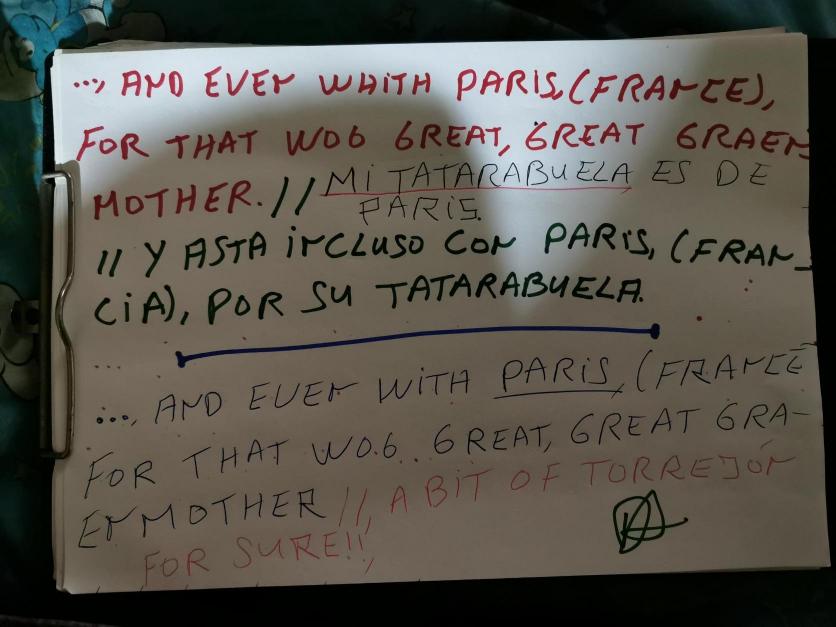 ..., AND EVEN WHITH PARIS, (FRANCE),
FOR THAT WO6 GREAT, GREAT GRAEN
MOTHER. // MI TATARABUELA ES DE
PARIS.
// Y ASTA INCLUSO CON PARIS, (FRAN_
CIA), POR SU TATARABUELA.
...
..., AND EVEN WITH PARIS, (FRANCE
FOR THAT WO.6.. GREAT, GREAT GRA-
ENMOTHER //, A BIT OF TORREJÓN
FOR SURE!!,